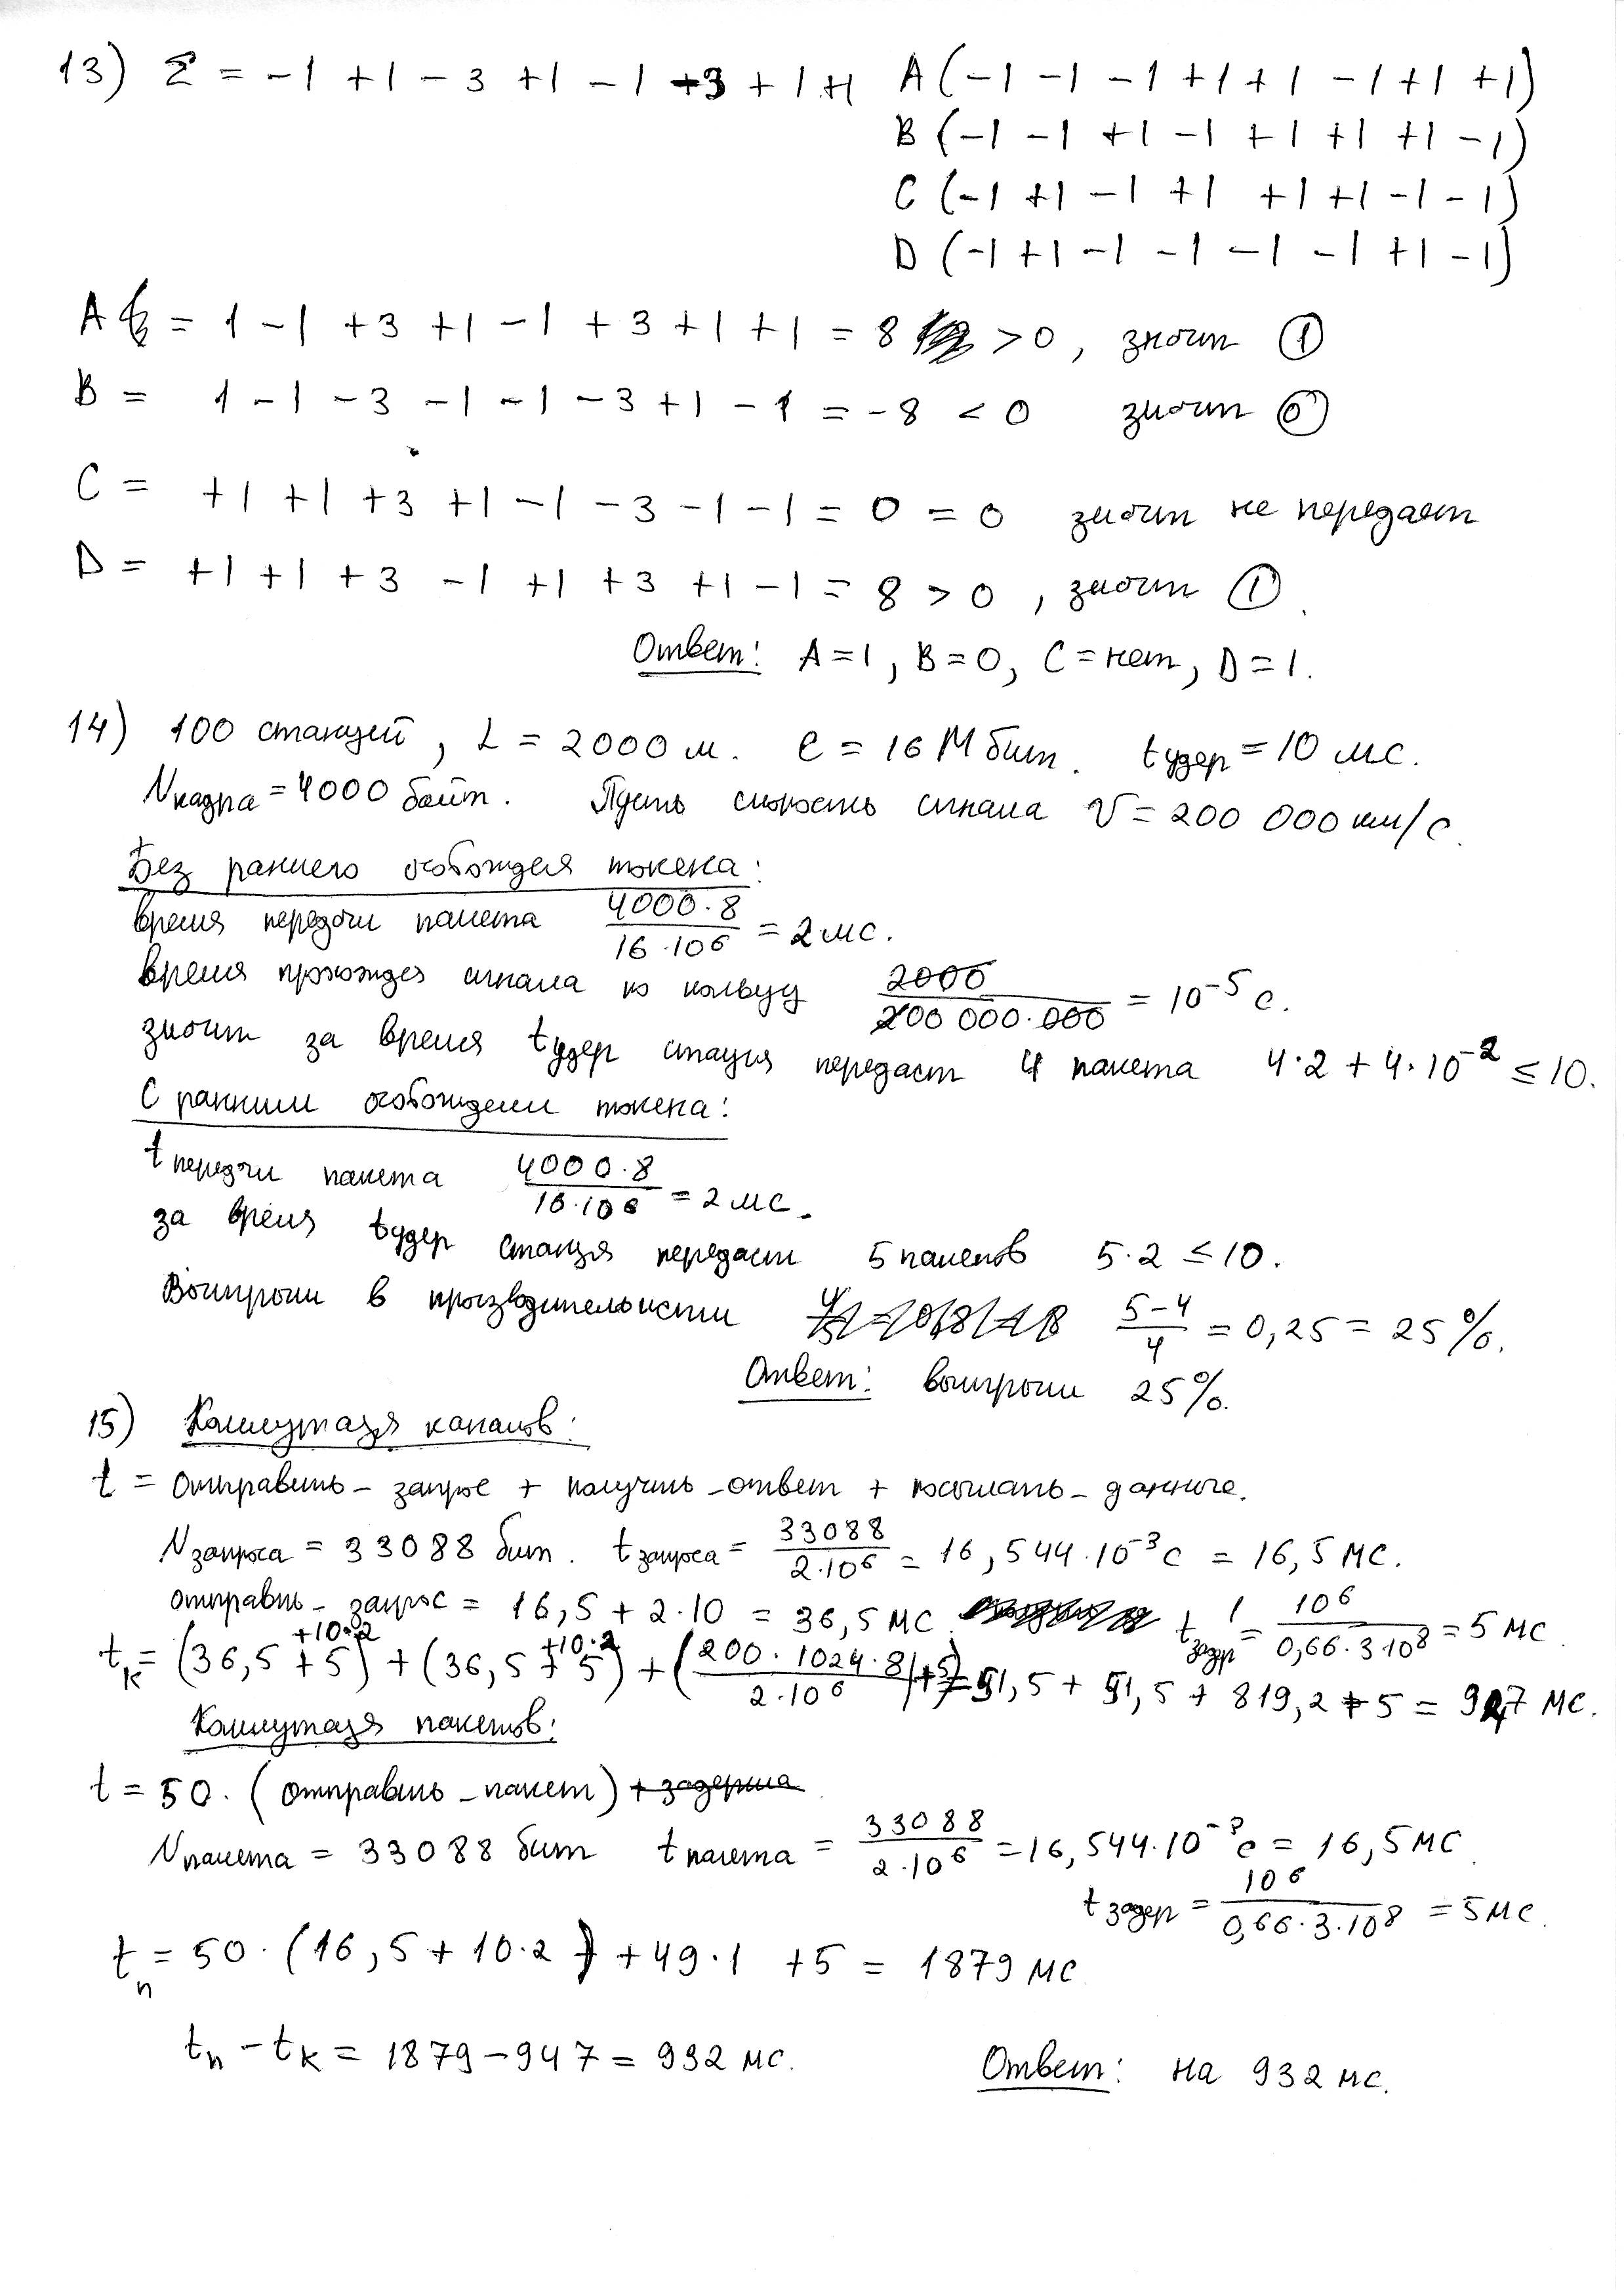 13) Σ = -1 +1 -3 +1 -1 -3 +1 +1 A(-1 -1 -1 +1 +1 -1 +1 +1)
B(-1 -1 +1 -1 +1 +1 +1 -1)
C(-1 +1 -1 +1 +1 +1 -1 -1)
D(-1 +1 -1 -1 -1 -1 +1 -1)
A = 1 -1 +3 +1 -1 +3 +1 +1 = 8 > 0, значит 1
B = 1 -1 -3 -1 -1 -3 +1 -1 = -8 < 0 значит 0
C = +1 +1 +3 +1 -1 -3 -1 -1 = 0 = 0 значит не передает
D = +1 +1 +3 -1 +1 +3 +1 -1 = 8 > 0, значит 1.
Ответ: A=1, B=0, C=нет, D=1.
14) 100 станций, L = 2000 м. C = 16 Мбит. tудер = 10 мс.
Nкадра = 4000 байт. Пусть скорость сигнала V = 200 000 км/с.
Без раннего освобождея токена:
время передачи пакета 4000·8 / 16·10^6 = 2 мс.
время прохождея сигнала по кольцу 2000 / 200 000·000 = 10^-5 с.
значит за время tудер стация передаст 4 пакета 4·2 + 4·10^-2 ≤ 10.
С ранним освобождеем токена:
t передачи пакета 4000·8 / 16·10^6 = 2 мс.
за время tудер станця передаст 5 пакетов 5·2 ≤ 10.
Выигрыш в производительности 5-4 / 4 = 0,25 = 25%.
Ответ: выигрыш 25%.
15) Коммутаця каналов:
t = отправить_запрос + получить_ответ + посылать_данные.
Nзапроса = 33088 бит. tзапроса = 33088 / 2·10^6 = 16,544·10^-3 с = 16,5 мс.
отправить_запрос = 16,5 + 2·10 = 36,5 мс tзадер = 10^6 / 0,66·3·10^8 = 5 мс
tк = (36,5 + 5 +10·2) + (36,5 + 5 +10·2) + (200·1024·8 / 2·10^6 + 5) = 51,5 + 51,5 + 819,2 + 5 = 947 мс.
Коммутаця пакетов:
t = 50·(отправить_пакет) + задержка
Nпакета = 33088 бит tпакета = 33088 / 2·10^6 = 16,544·10^-3 с = 16,5 мс
tзадер = 10^6 / 0,66·3·10^8 = 5 мс.
tп = 50·(16,5 + 10·2) + 49·1 + 5 = 1879 мс
tп - tк = 1879 - 947 = 932 мс.
Ответ: на 932 мс.